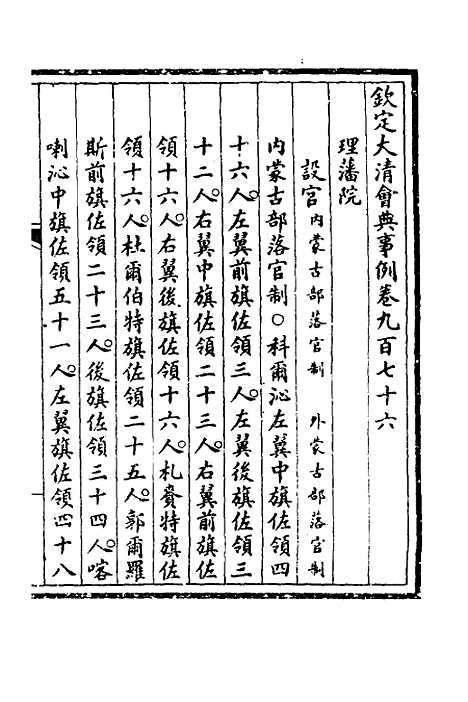 欽定大清會典事例卷九百七十六
理藩院
設官內蒙古部落官制 外蒙古部落官制
內蒙古部落官制○科爾沁左翼中旗佐領四
十六人。左翼前旗佐領三人。左翼後旗佐領三
十二人。右翼中旗佐領二十三人。右翼前旗佐
領十六人。右翼後旗佐領十六人。札賚特旗佐
領十六人。杜爾伯特旗佐領二十五人。郭爾羅
斯前旗佐領二十三人。後旗佐領三十四人。喀
喇沁中旗佐領五十一人。左翼旗佐領四十八